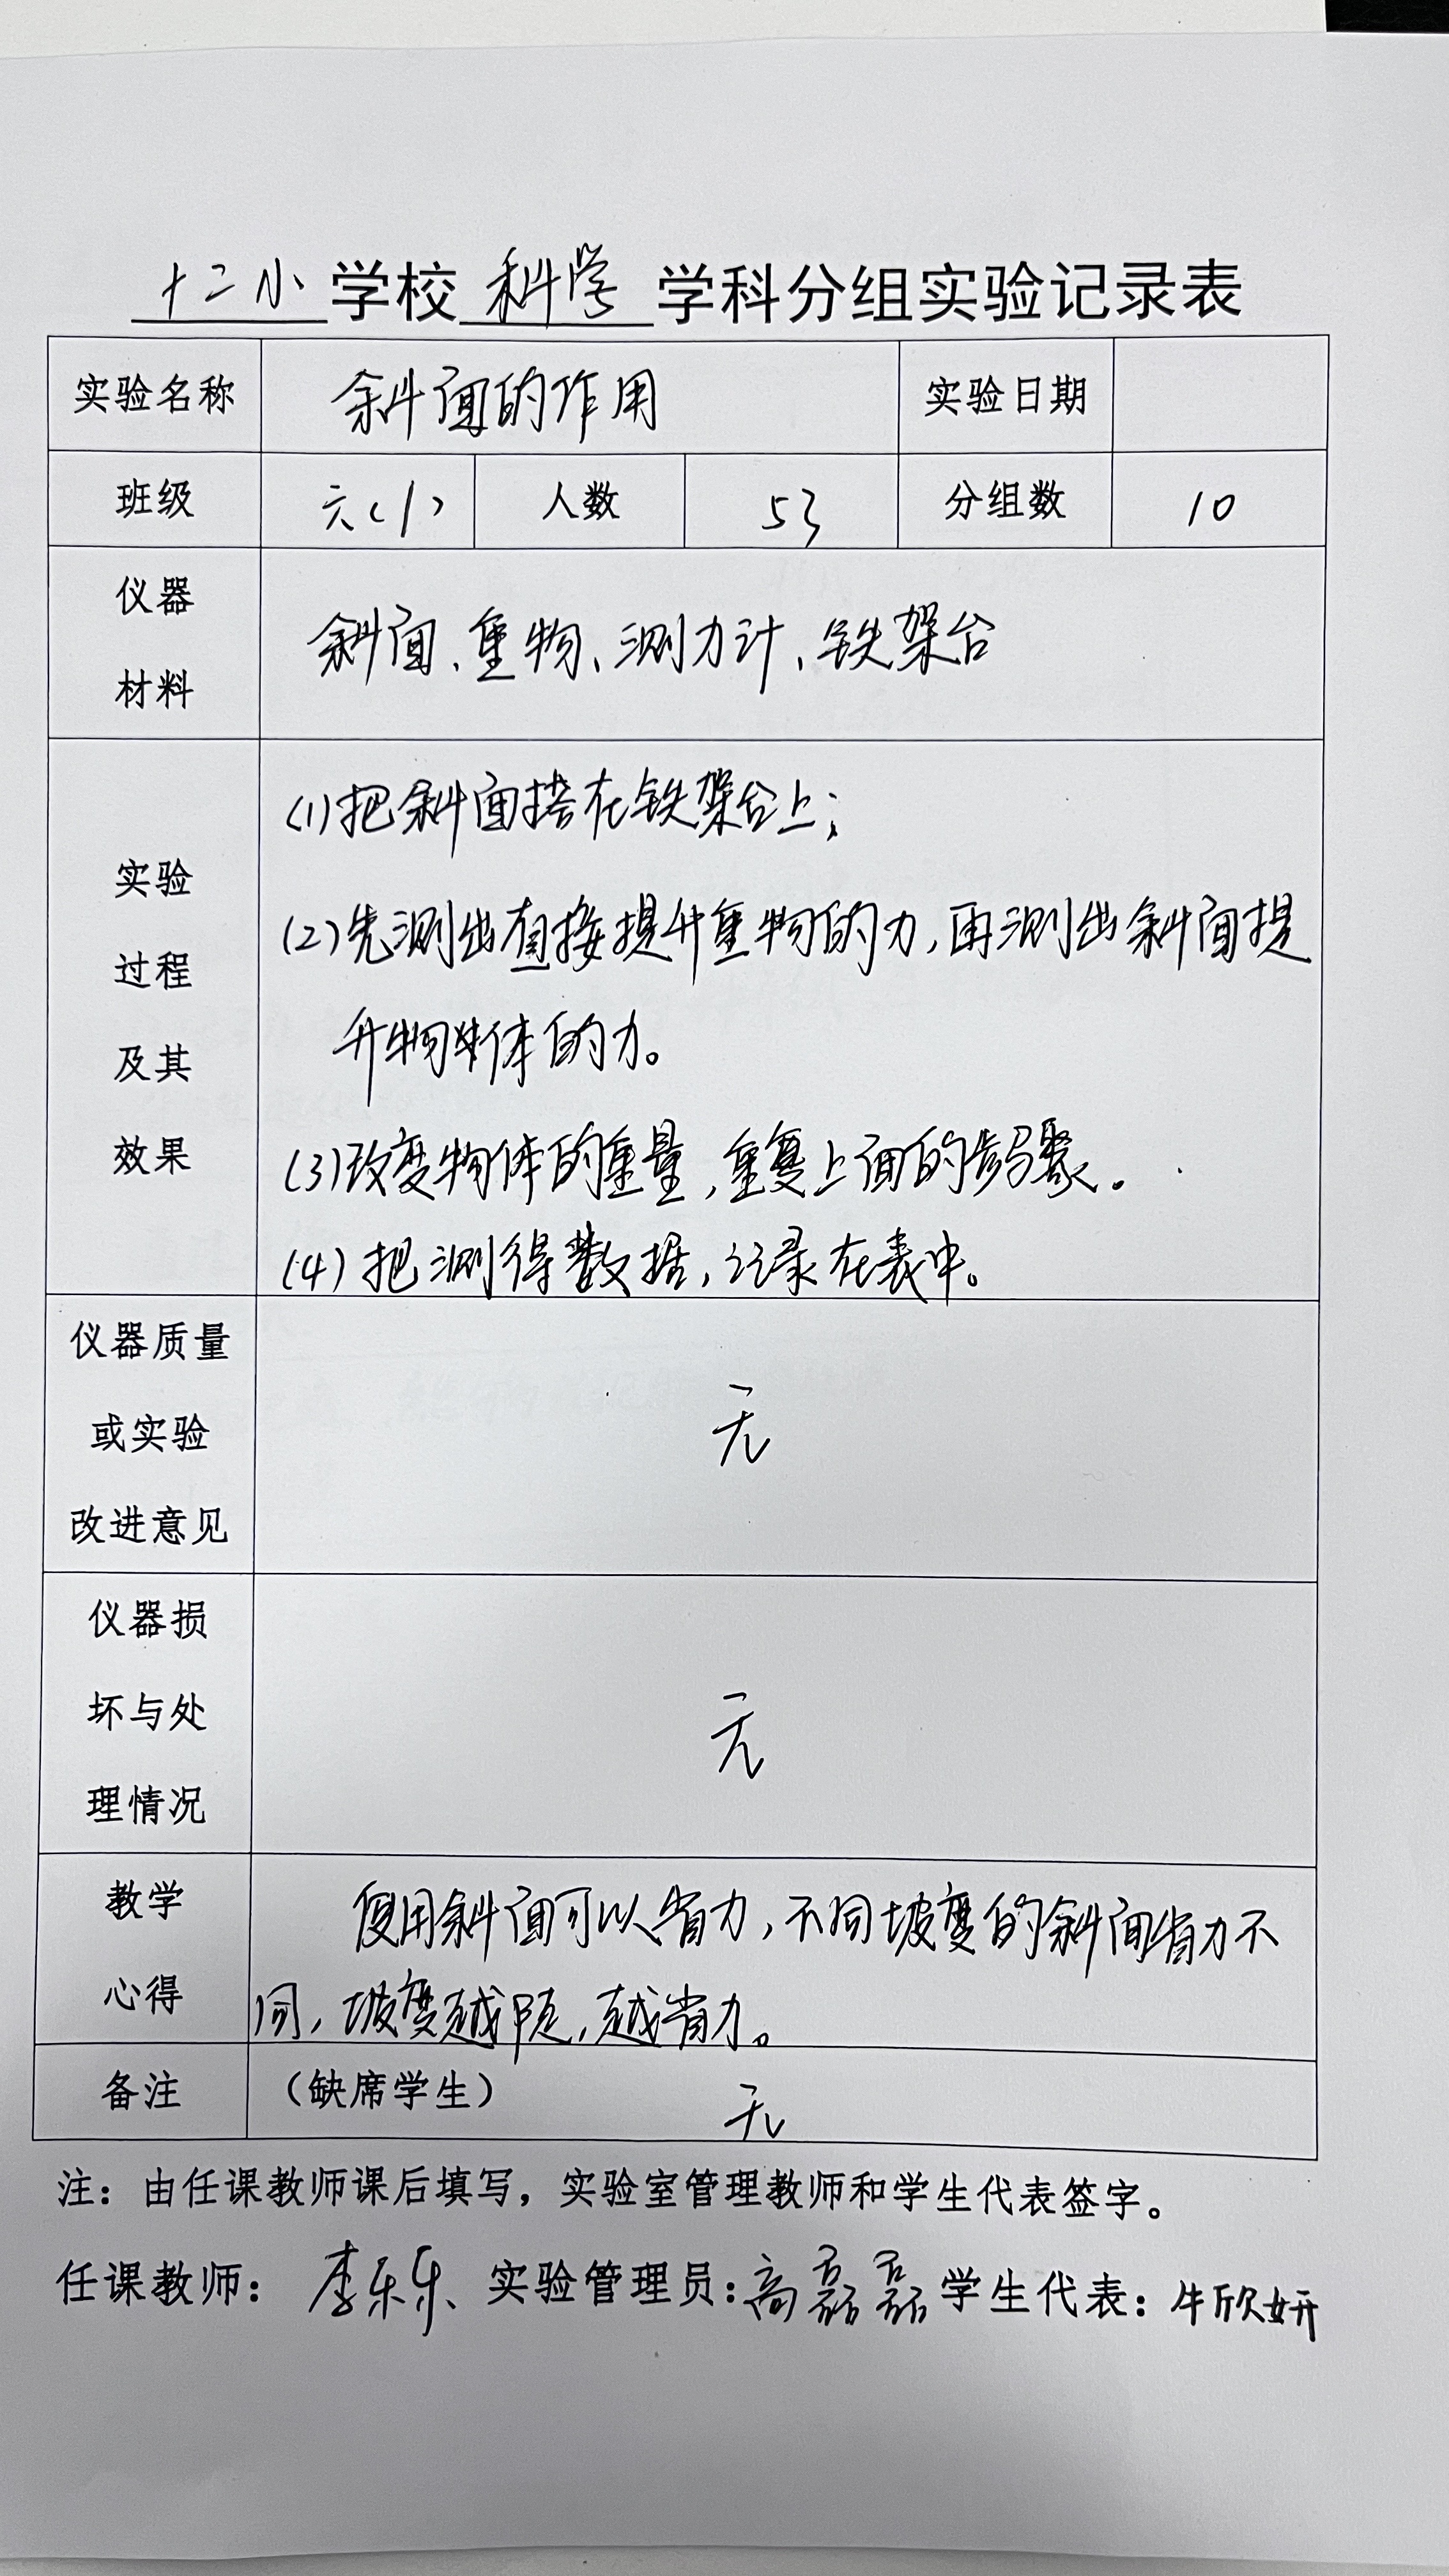 十二小学校科学学科分组实验记录表
实验名称 斜面的作用 实验日期
班级 六(1) 人数 53 分组数 10
仪器
材料
斜面、重物、测力计、铁架台
实验
过程
及其
效果
(1)把斜面搭在铁架台上;
(2)先测出直接提升重物的力,再测出斜面提
升物体的力。
(3)改变物体的重量,重复上面的步骤。
(4)把测得数据,记录在表中。
仪器质量
或实验
改进意见
无
仪器损
坏与处
理情况
无
教学
心得
使用斜面可以省力,不同坡度的斜面省力不
同,坡度越陡,越省力。
备注 (缺席学生) 无
注:由任课教师课后填写,实验室管理教师和学生代表签字。
任课教师: 李乐乐 实验管理员:高磊磊 学生代表:牛欣妍